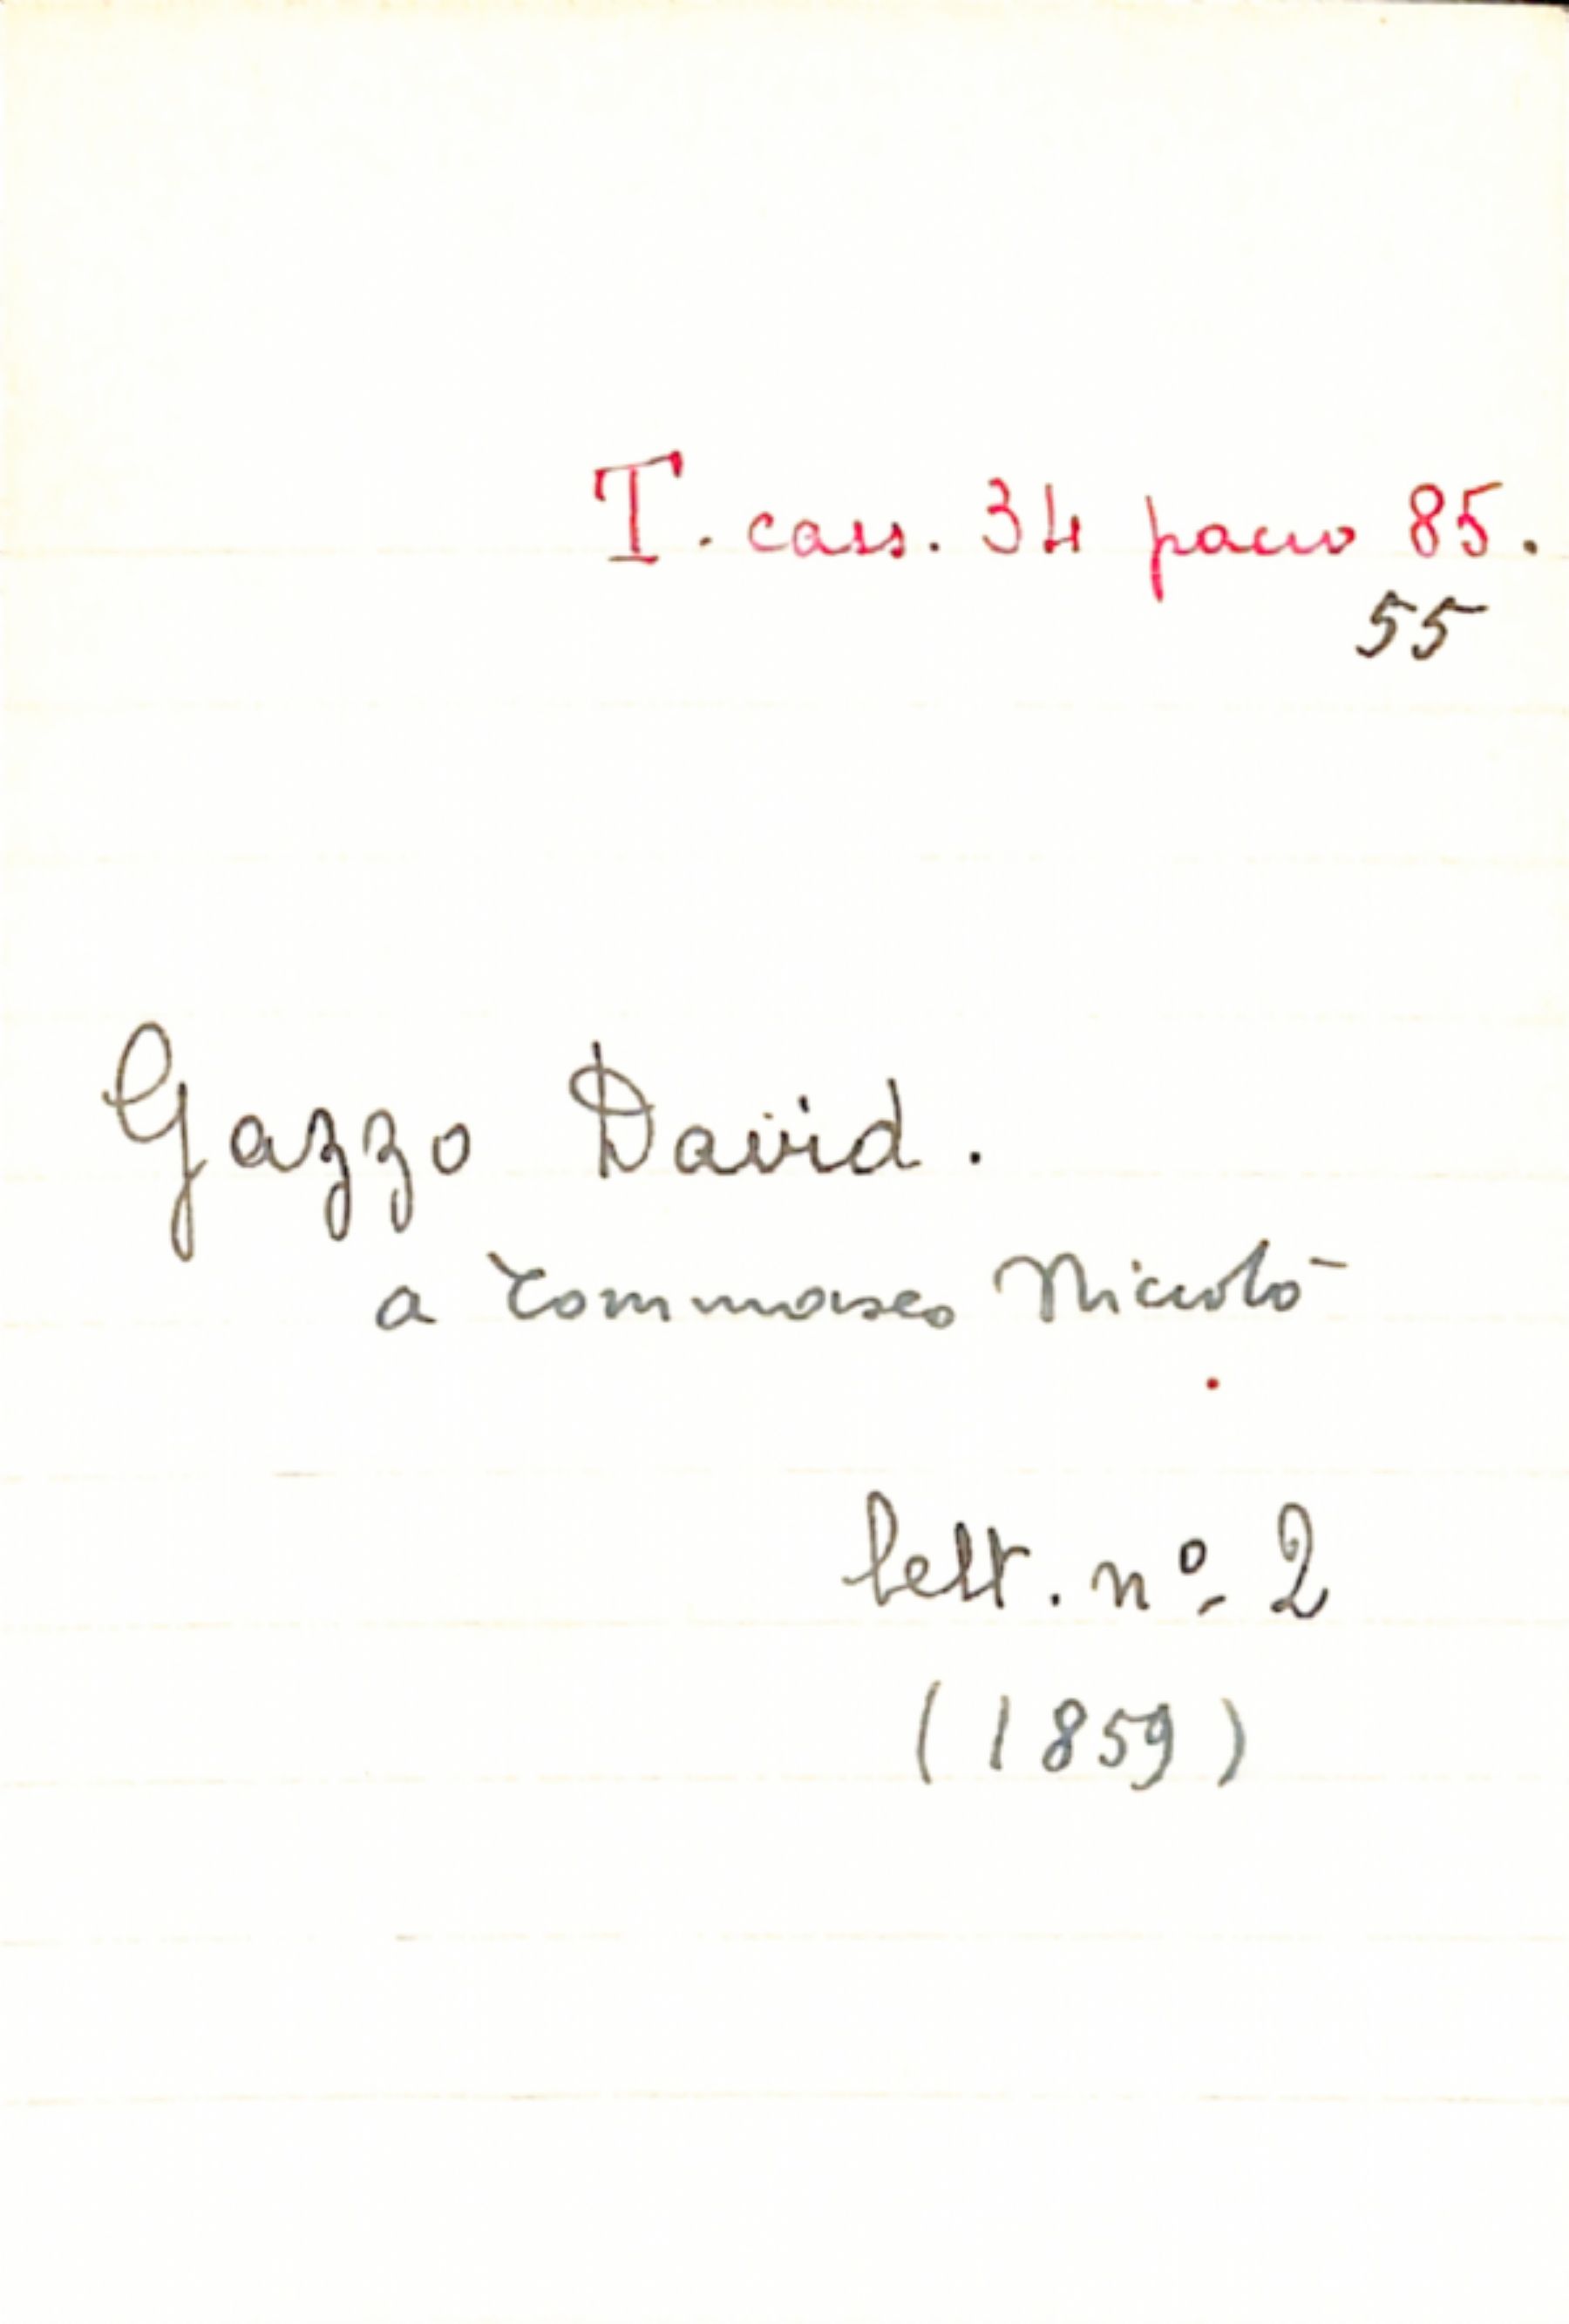 T. cass. 34 pacco 85.
55
Gazzo David.
a Tommaseo Niccolò
lett. nº 2
(1859)